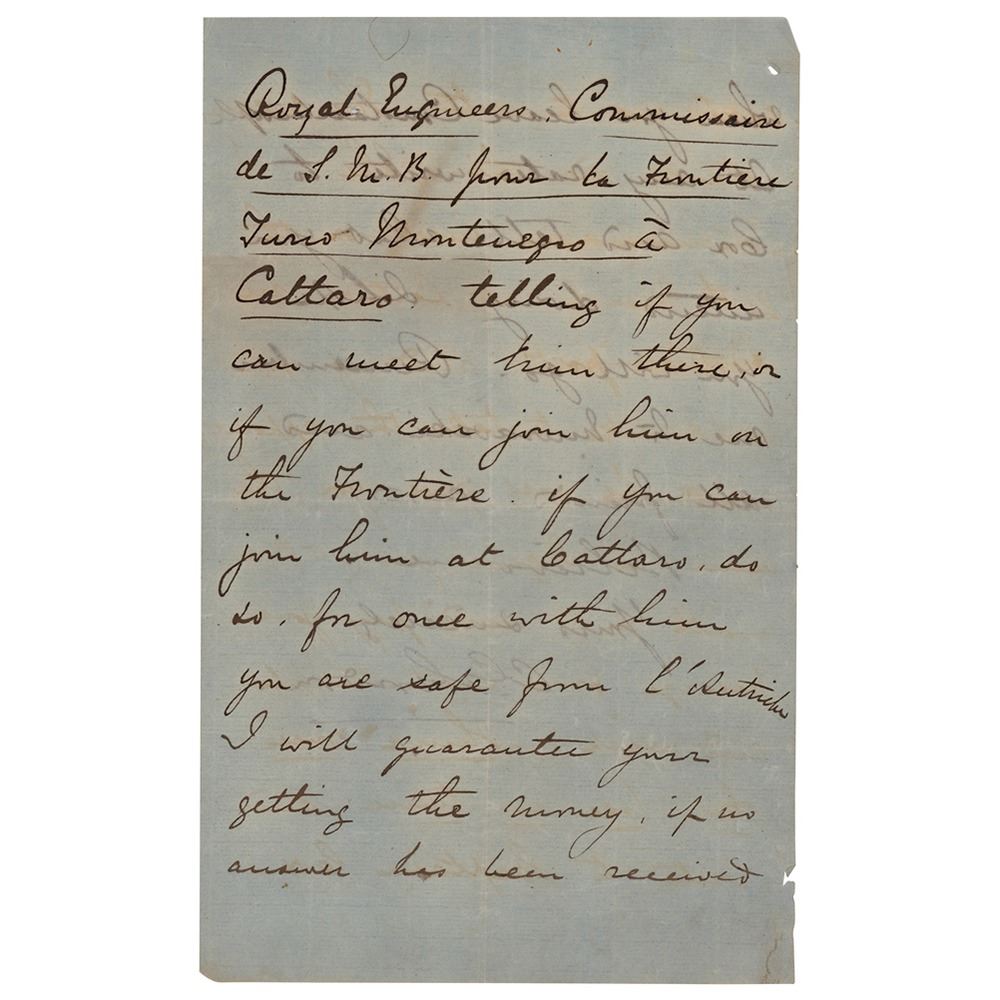 Royal Engineers. Commissaire
de S. M. B. pour la Frontière
Turco Montenegro à
Cattaro. telling if you
can meet him there, or
if you can join him on
the Frontière. if you can
join him at Cattaro, do
so, for once with him
you are safe from l'Autriche
I will guarantee your
getting the money, if no
answer has been received